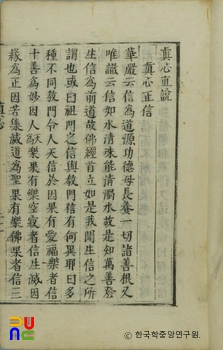 眞心直說
眞心正信
華嚴云信為道源功德母長養一切諸善根又
唯識云信如水清珠能清濁水故是知萬善發
生信為前導故佛經首立如是我聞生信之所
謂也或曰祖門之信與敎門信有何異耶曰多
種不同敎門令人天信於因果有愛福樂者信
十善為妙因人天為樂果有樂空寂者信生滅因
緣為正因苦集滅道為聖果有樂佛果者信三
ⓒ 한국학중앙연구원